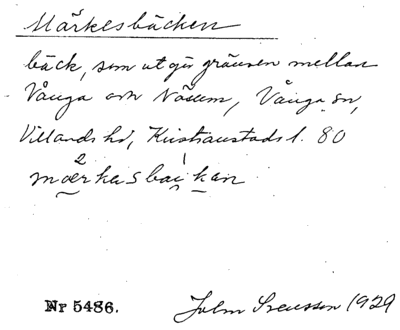 Märkesbäcken
bäck, som utgör gränsen mellan
Vånga och Näsum, Vånga sn,
Villands hd, Kristianstads l. 80
2 1
mærkasbaikan
Nr 5486.
John Svensson 1929